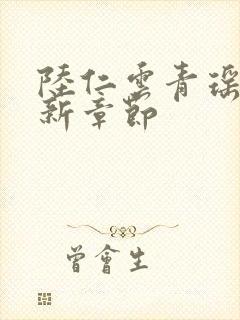 陸仁雲青瑶
新章節
曾會生